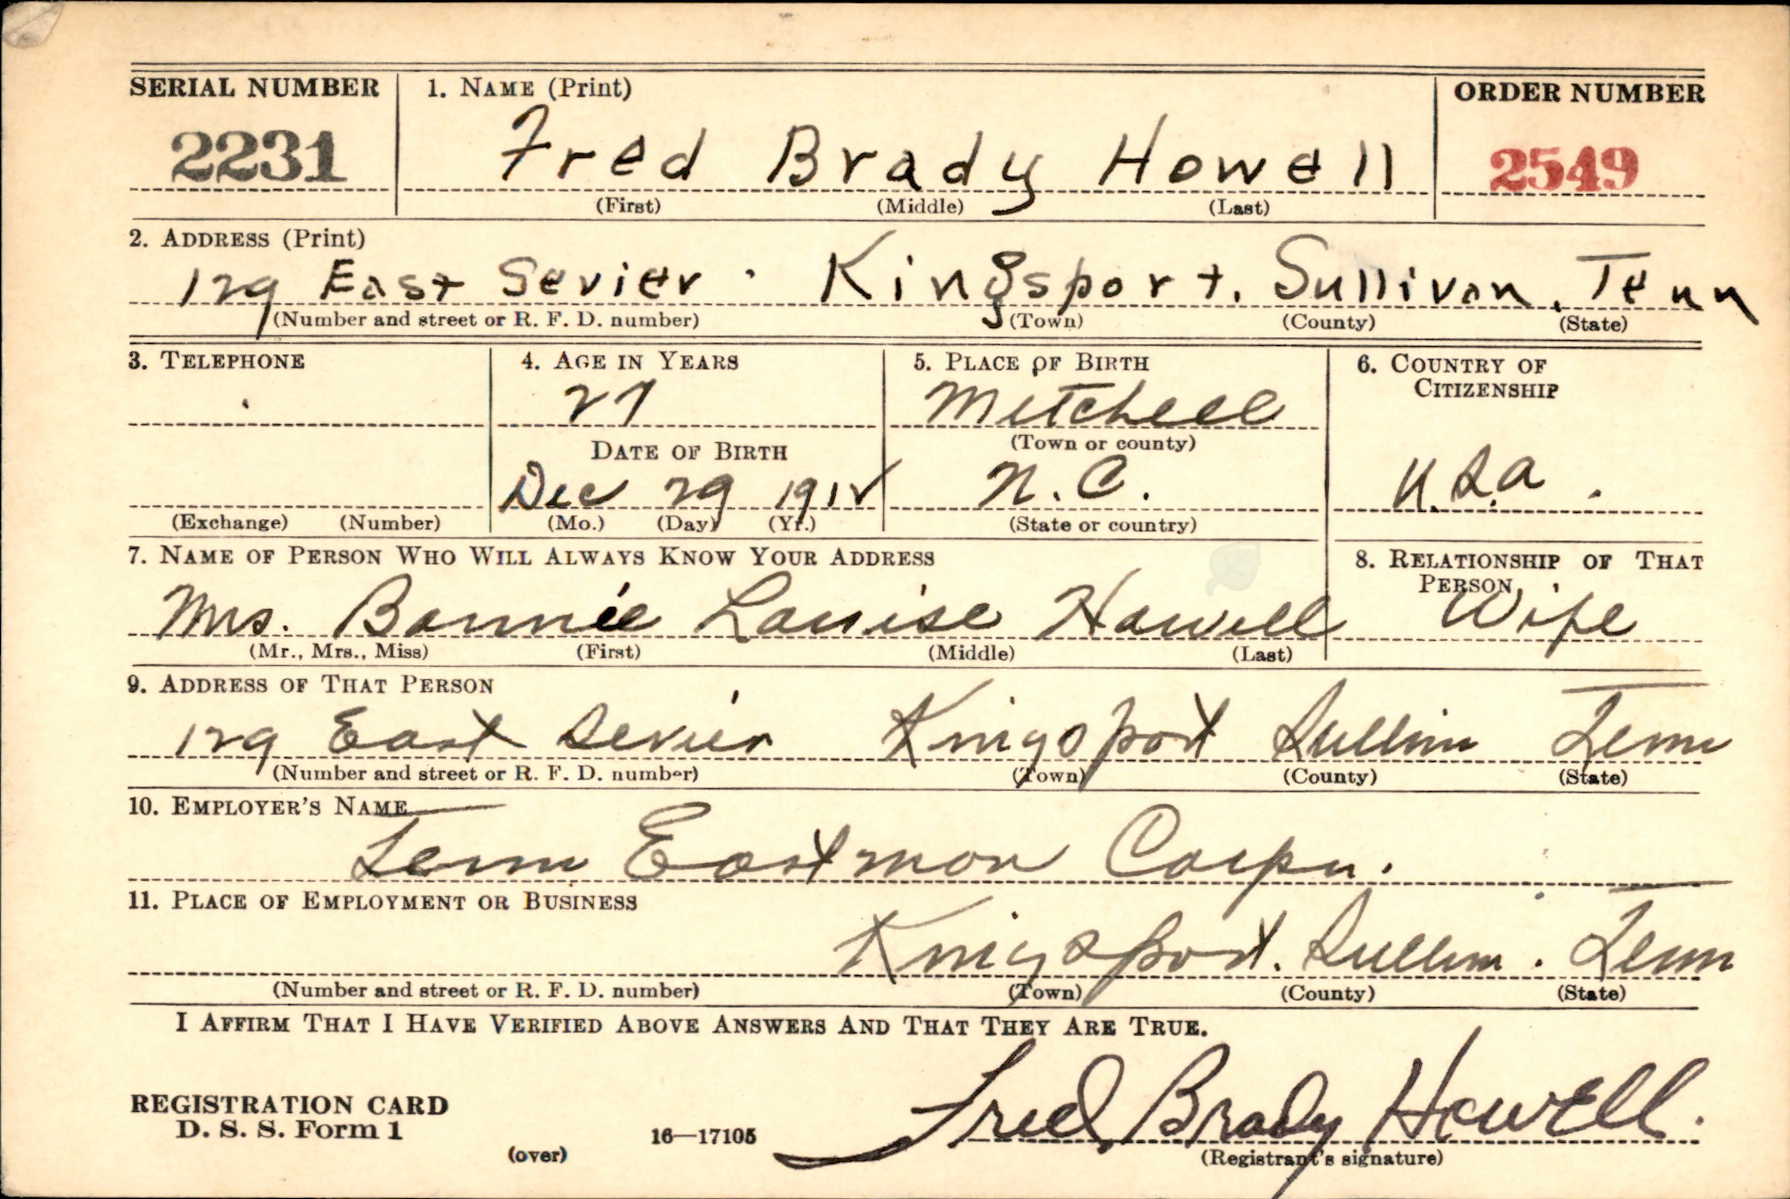 SERIAL NUMBER 1. NAME (Print) ORDER NUMBER
2231 Fred Brady Howell 2549
(First) (Middle) (Last)
2. ADDRESS (Print)
129 East Sevier. Kingsport, Sullivan, Tenn
(Number and street or R. F. D. number) (Town) (County) (State)
3. TELEPHONE 4. AGE IN YEARS 5. PLACE OF BIRTH 6. COUNTRY OF CITIZENSHIP
27 Mitchell
DATE OF BIRTH (Town or county)
Dec 29 1912 N. C. U.S.A.
(Exchange) (Number) (Mo.) (Day) (Yr.) (State or country)
7. NAME OF PERSON WHO WILL ALWAYS KNOW YOUR ADDRESS 8. RELATIONSHIP OF THAT PERSON
Mrs. Bonnie Louise Howell Wife
(Mr., Mrs., Miss) (First) (Middle) (Last)
9. ADDRESS OF THAT PERSON
129 East Sevier Kingsport Sullivan Tenn
(Number and street or R. F. D. number) (Town) (County) (State)
10. EMPLOYER'S NAME
Tenn Eastman Corpn.
11. PLACE OF EMPLOYMENT OR BUSINESS
Kingsport. Sullivan. Tenn
(Number and street or R. F. D. number) (Town) (County) (State)
I AFFIRM THAT I HAVE VERIFIED ABOVE ANSWERS AND THAT THEY ARE TRUE.
REGISTRATION CARD
D. S. S. Form 1 Fred Brady Howell.
(over) 16—17105 (Registrant's signature)